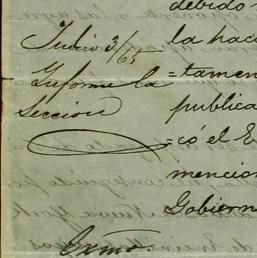 Julio 3/65
Informe la
Seccion
debido
la hac
=tamen
publica
=có el E
mencion
Gobiern
Exmo.